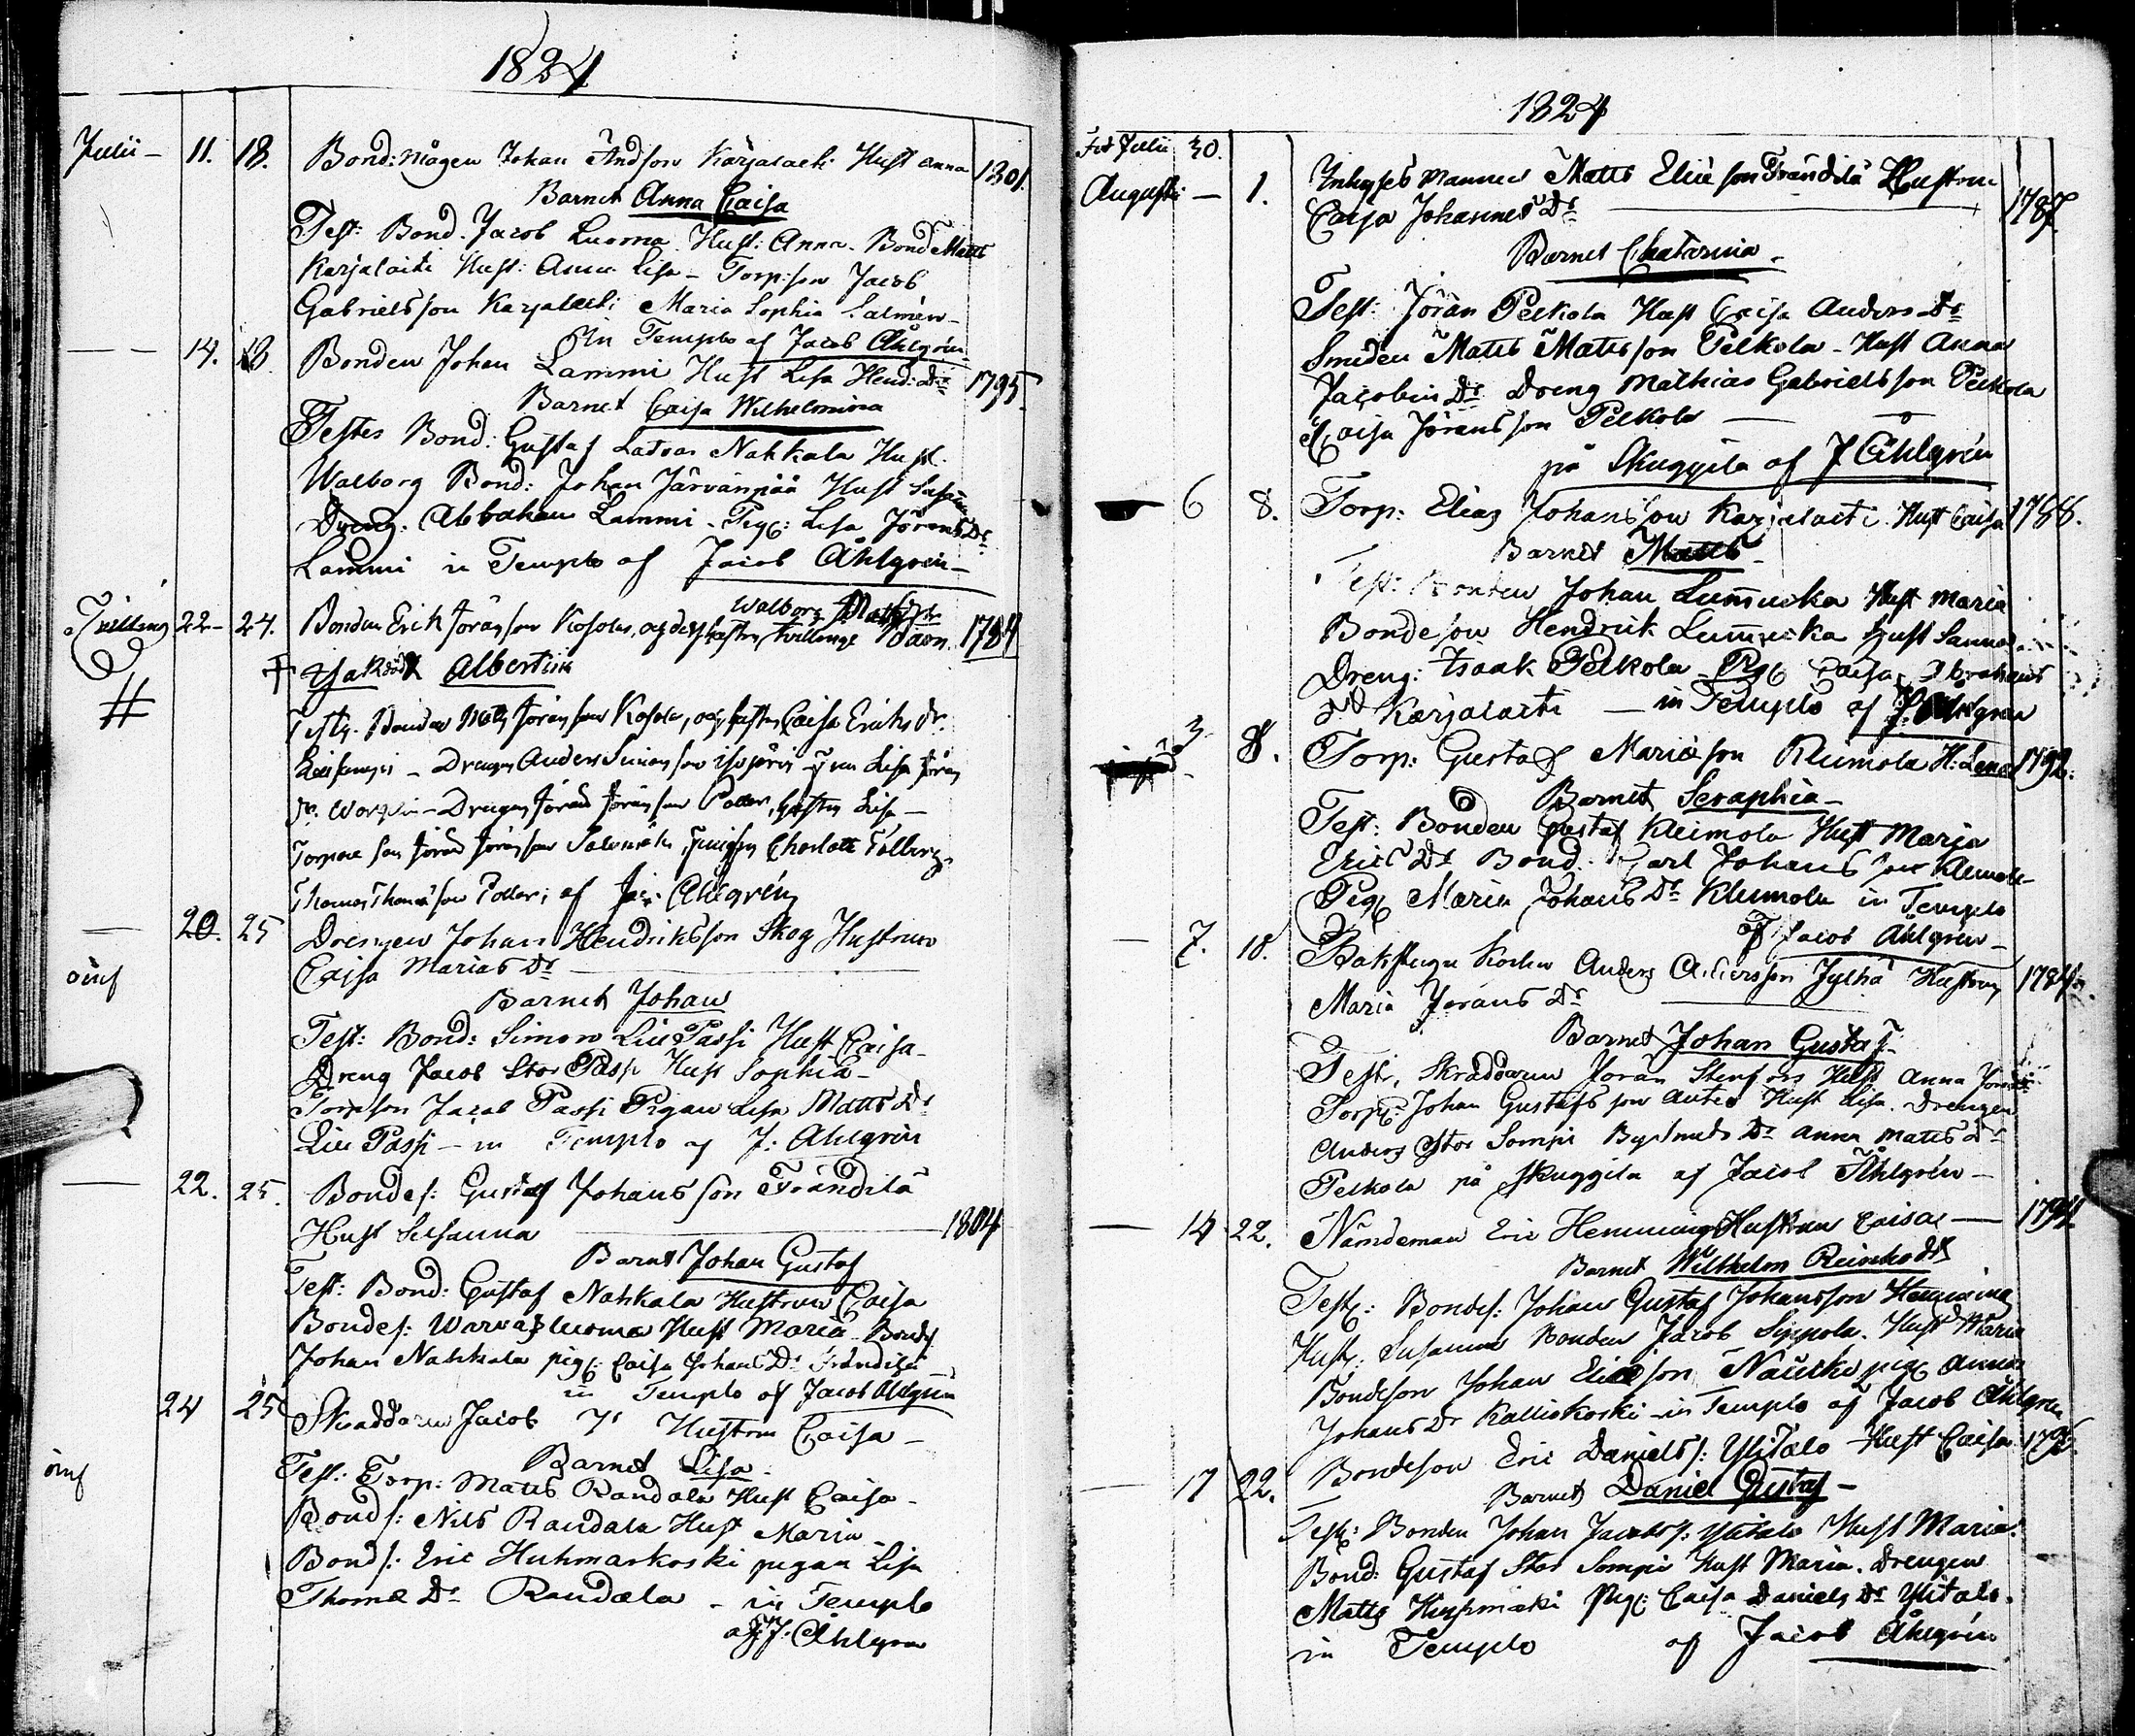 1824
Julii — 11. 18. Bond: mågen Johan Andson Karjalaiti Hust anna 1801.
Barnet Anna Caisa
Test: Bond. Jacob Luoma Hust: Anna. Bond Matts
Karjalaiti Hust: Anna Lisa — Torp:son Jacob
Gabrielsson Karjalaiti Maria Sophia Salmén —
In Templo af Jacob Åhlgrén
— 14. 18. Bonden Johan Lammi Hust Lisa Hend: Dr 1795.
Barnet Caisa Wilhelmina
Testes Bond: Gustaf Latvas Nahkala Hust.
Walborg Bond: Johan Järvänpää Hust
Dreng. Abraham Lammi — Pig: Lisa Jörans Dr
Lammi in Templo af Jacob Åhlgrén —
Walborg Matts Dr
Tvilling 22 — 24. Bonden Erik Jöransson Kosola, och dess hustru tvillinge Barn. 1784
# Albertina
Bonden Matts Jöransson Kosola, och hustru Caisa Eriks dr.
— Drengen Anders Simonsson Lisa Jörans
dr. — Drengen Jöran Jöransson Potter, hustru Lisa —
Jöran Jöransson Charlotte
Thomas Thomasson af Åhlgrén
— 20. 25 Drengen Johan Hendriksson Skog Hustrun
Caisa Marias Dr —
Barnet Johan
Test: Bond: Simon Lill Passi Hust Caisa —
Dreng Jacob Stor Passi Hust Sophia —
Torpson Jacob Passi Pigan Lisa Matts Dr
Lill Passi — in Templo af J: Åhlgrén
— 22. 25. Bondes: Gustaf Johansson Frändilä
Hust Susanna — 1804
Barnet Johan Gustaf
Test: Bond: Gustaf Nahkala Hustrun Caisa
Bondes: Warvasluoma Hust Maria Bondes
Johan Nahkala pig: Caisa Johans Dr Frändilä —
in Templo af Jacob Åhlgrén
24 25 Skräddaren Jacob Hustrun Caisa —
Barnet Lisa
Test: Torp: Matts Randala Hust Caisa —
Bonds: Nils Randala Hust Maria —
Bonds: Eric Huhmarkoski pigan Lisa
Thomæ Dr Randala — in Templo
af J: Åhlgrén
1824
Julii 30.
Augusti — 1. Inhyses mannen Matts Eliæson Frändilä Hustrun
Caisa Johannes Dr — 1787.
Barnet Chatarina —
Test: Jöran Pelkola Hust Caisa Anders Dr
Smeden Matts Mattsson Pelkola — Hust Anna
Jacobs Dr Dreng Mathias Gabrielsson Pelkola
Caisa Jöransson Pelkola —
på Skuggila af J Åhlgrén
6 8. Torp: Elias Johansson Karjalaiti Hust Caisa 1788.
Barnet Matts —
Test: Bonden Johan Lummukka Hust Maria
Bondeson Hendrik Lummukka Hust Sanna
Dreng: Isaak Pelkola Pig Caisa Abrahams
Dr Karjalaiti — in Templo af J. Åhlgrén
3. 8. Torp: Gustaf Mariæson Kleimola H: Lena 1792.
Barnet Seraphia —
Test: Bonden Gustaf Kleimola Hust Maria
Erics Dr Bond. Carl Johansson Kleimola
Pig Maria Johans Dr Kleimola in Templo
af Jacob Åhlgrén —
— 7. 10. Anders Andersson Jylhä Hustrun 1784.
Maria Jörans Dr —
Barnet Johan Gustaf
Test, Skräddaren Jöran Stenfors Hust Anna
Torp: Johan Gustafsson Hust Lisa. Drengen
Anders Stor Sompi Bysmeds Dr Anna Matts Dr
Pelkola på Skuggila af Jacob Åhlgrén —
— 14 22. Nämdeman Eric Hemming Hustrun Caisa — 1794.
Barnet Wilhelm Reinhold
Test: Bondes: Johan Gustaf Johansson Hemming
Hust: Susanna Bonden Jacob Sippola. Hust Maria
Bondeson Johan Eliæson pig Anna
Johans Dr Kalliokoski — in Templo af Jacob Åhlgrén
— 17 22. Bondeson Eric Daniels: Ylitalo Hust Caisa
Barnet Daniel Gustaf —
Test: Bonden Johan Jacobs: Ylitalo Hust Maria.
Bond: Gustaf Stor Sompi Hust Maria. Drengen
Matts Pig: Caisa Daniels Dr Ylitalo.
in Templo af Jacob Åhlgrén